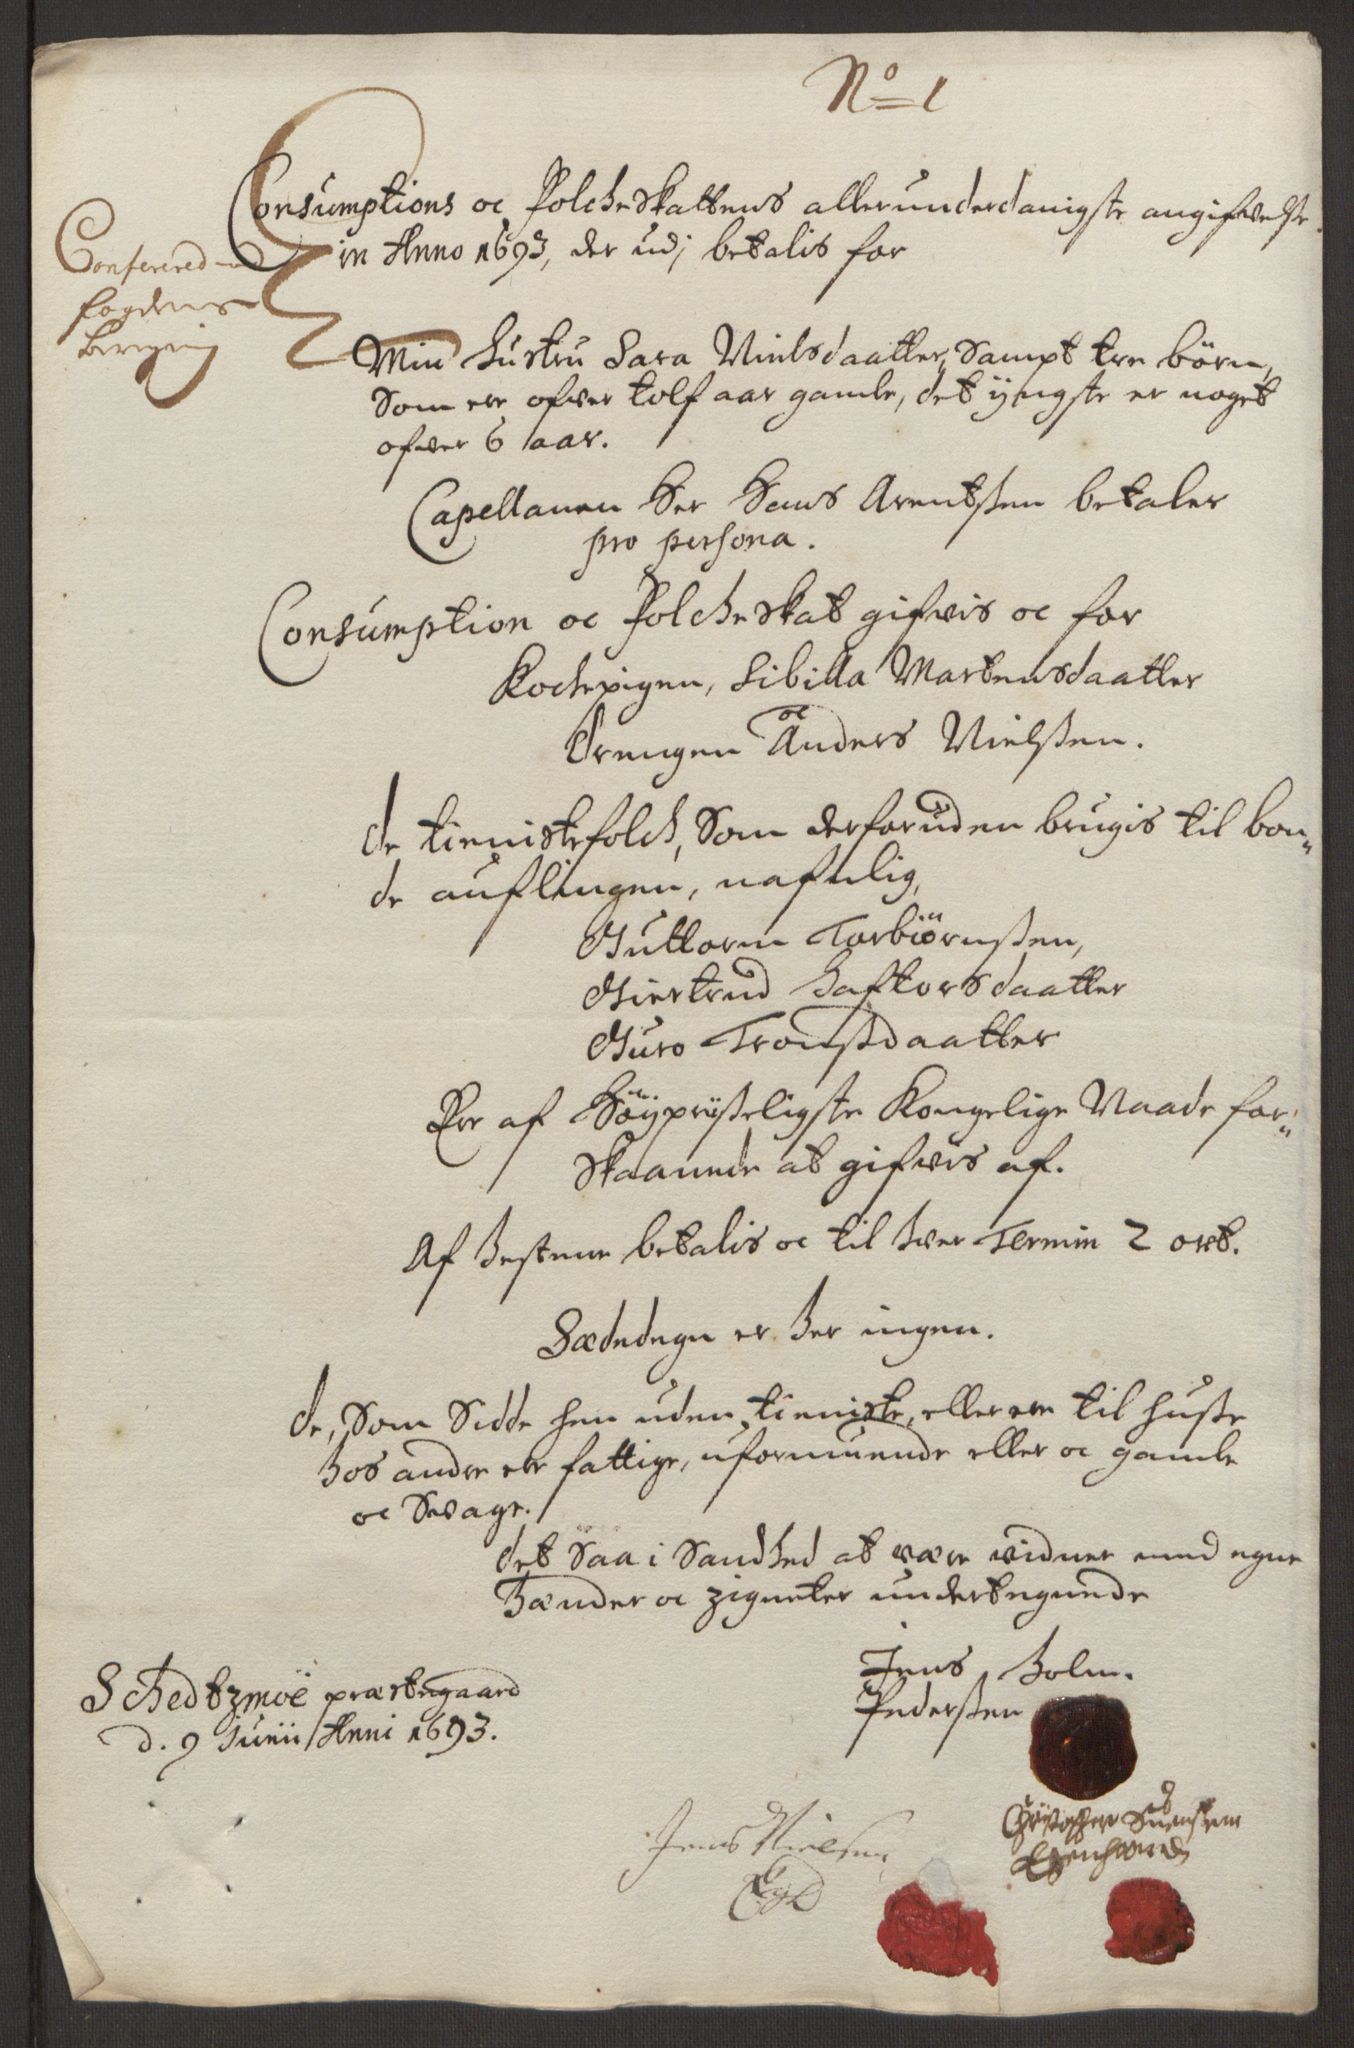 No 1
Consumptions oc Folcheskattens allerunderdanigste angifvelse
in Anno 1693, der udj betalis for
Conferered med
fogdens
Min Hustru Sara Nielsdaatter, Sampt tre börn,
Som ere ofver tolf aar gamle, det ÿngste er noget
ofver 6 aar.
Capellanen Her Hans Arentsen betaler
pro persona.
Consumption oc Folcheskat gifvis oc for
Kochepigen, Sibilla Martensdaatter
oc
drengen Anders Nielsen.
de tienistefolch, Som derforuden brugis til bon-
de auflingen, nafnlig,
Guttorm Torbiörnsen,
Giertrud Haftorsdaatter
Guro Tronsdaatter
Ere af Höÿpriiseligste Kongelige Naade for-
Skaanede at gifvis af.
Af Hestene betalis oc til hver Termin 2 ort.
Sædedegn er her ingen.
de, Som Sidde hen uden tieniste, eller ere til huse
hos andre ere fattige, uformuende eller oc gamle
oc Svage.
det Saa i Sandhed at være vidner med egne
Hænder oc zigneter undertegnede
Jens Holm.
Pedersen
Schedtzmoe præstegaard
d. 9 Junii Anni 1693.
Jens Nielsen
Christopher Suensen
Egenhaand